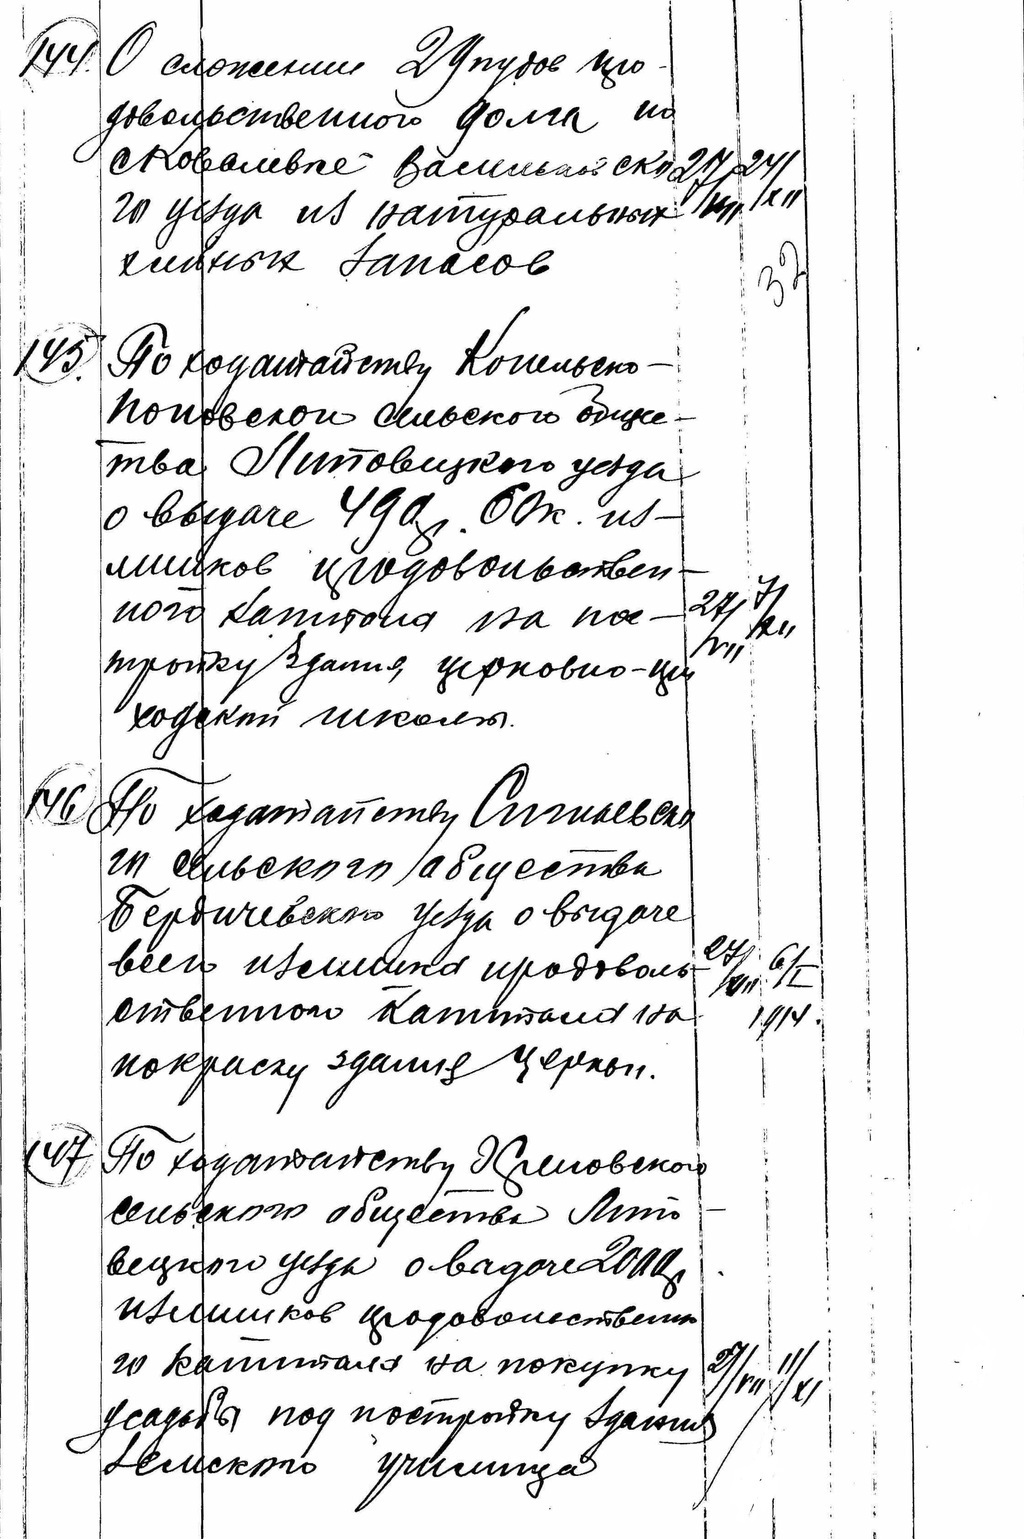 144. О сложении 29 пудов про-
довольственного долга по
с Ковалевке Васильковско 27/VIII 24/XII
го уезда из натуральных
хлебных запасов
32
145. По ходатайству Копельско-
Поповской сельского обще-
тва Липовецкого уезда
о выдаче 490 р. 60 к. из-
лишков продовольствен-
ного капитала на пос- 27/VIII 7/XII
тройку здания церковно-при
ходской школы.
146 По ходатайству
го сельского общества
Бердичевского уезда о выдаче
всего излишка продоволь 27/VIII 6/I
ственного капитала на 1914.
покраску здания церкви.
147 По ходатайству
сельского общества Липо-
вецкого уезда о выдаче 200 р.
излишков продовольственно
го капитала на покупку 27/VIII 11/XI
усадьбы под постройку здания
земского училища